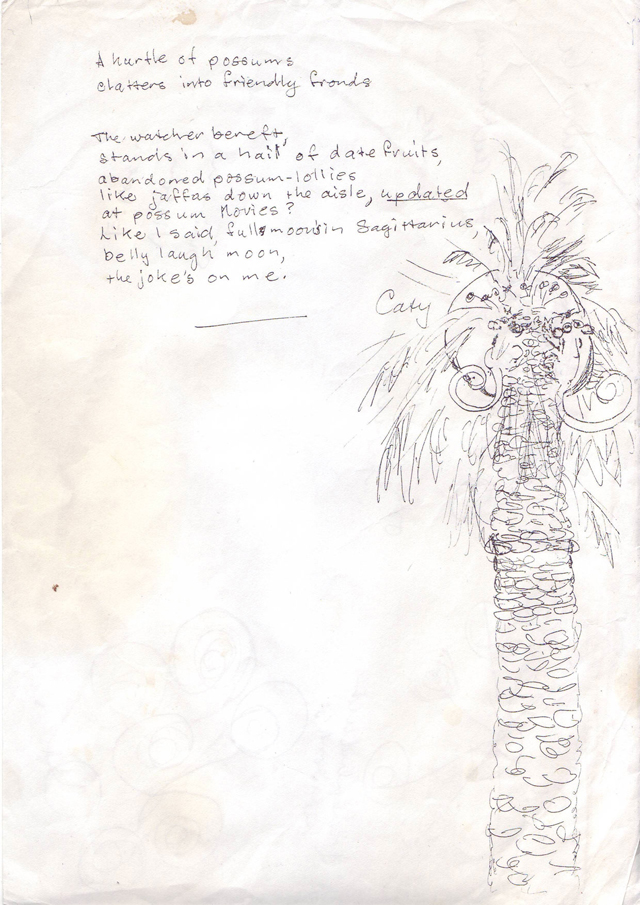 A hurtle of possums
clatters into friendly fronds
The watcher bereft,
stands in a hail of date fruits,
abandoned possum-lollies
like jaffas down the aisle, updated
at possum Movies?
Like I said, full moon's in Sagittarius,
belly laugh moon,
the joke's on me.
Caty